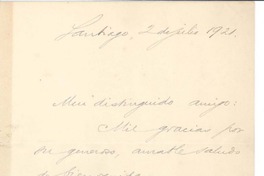 Santiago, 2 de julio 1921.
Mui distinguido amigo:
Mil gracias por
su generoso, amable saludo
de bienvenida